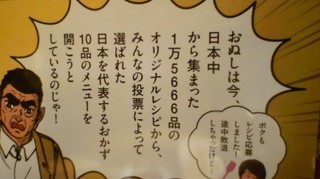 おぬしは今、
日本中
から集まった
1万5666品の
オリジナルレシピから、
みんなの投票によって
選ばれた
日本を代表するおかず
10品のメニューを
開こうと
しているのじゃ!
ボクも
レシピ応募
しました!
途中敗退
しちゃったけど!